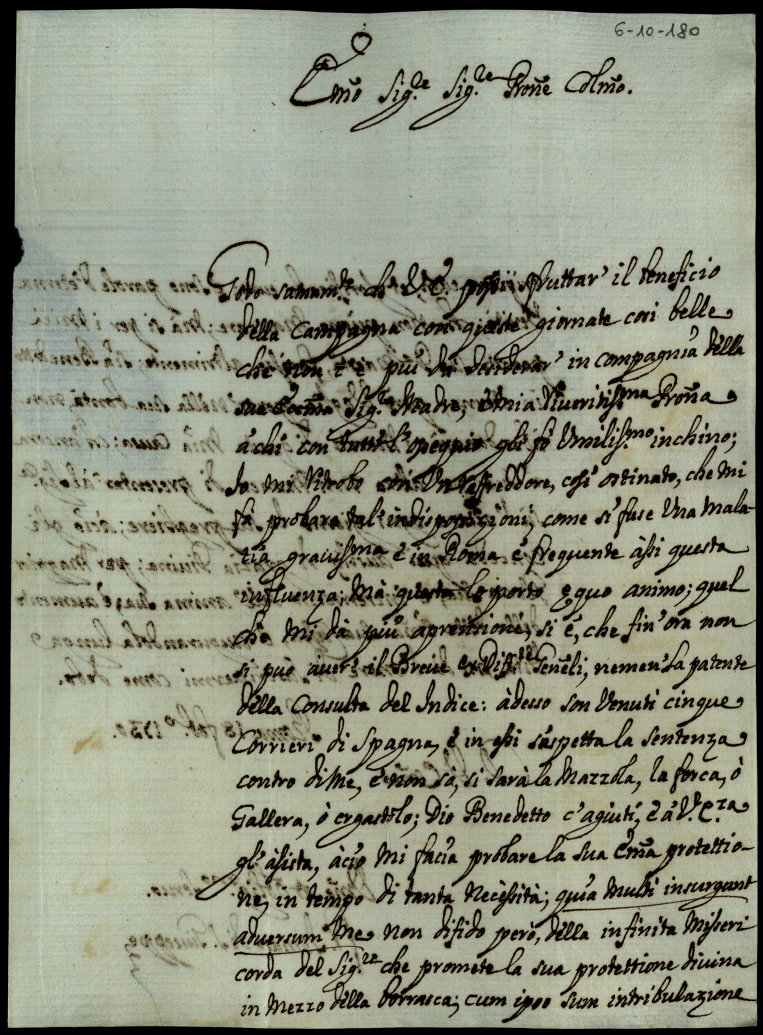 6-10-180
Emo Sig.re Sig.re Prone Colmo.
Godo samam.te che V.E. possi sfruttar' il beneficio
della campagna con queste giornate cosi belle
che non v'è più da desiderar' in compagnia della
sua Ecc.ma Sig.ra Madre, è mia Riveritis.ma Prona
à chi con tutt' l'ossequio gli fò Umilis.mo inchino;
Io mi ritrovo con un raffreddore, cosi ostinato, che mi
fà probare tal' indisposizioni, come si fuse una mala-
tia gravis.ma è in Roma è frequente àssi questa
influenza; mà questa lo porto equo animo; quel
che mi dà più aprensione, si è, che fin' ora non
si può aver' il Breve ex Diff.re Genëli, nemen' la patente
della Consulta del Indice: àdesso son venuti cinque
Corrieri di Spagna, è in essi s'aspetta la sentenza
contro di me, è non sà, si sarà la Mazzola, la forca, ò
Gallera, ò ergastolo; Dio Benedetto c'agiuti, è à V. E.za
gl' àsista, àcio mi facia probare la sua Ema protettio-
ne, in tempo di tanta necèssità; quia multi insurgunt
adversum me non difido però, della infinita Miseri
corda del Sig.re che promete la sua protettione divina
in mezzo della borrasca; cum ipso sum intribulazione